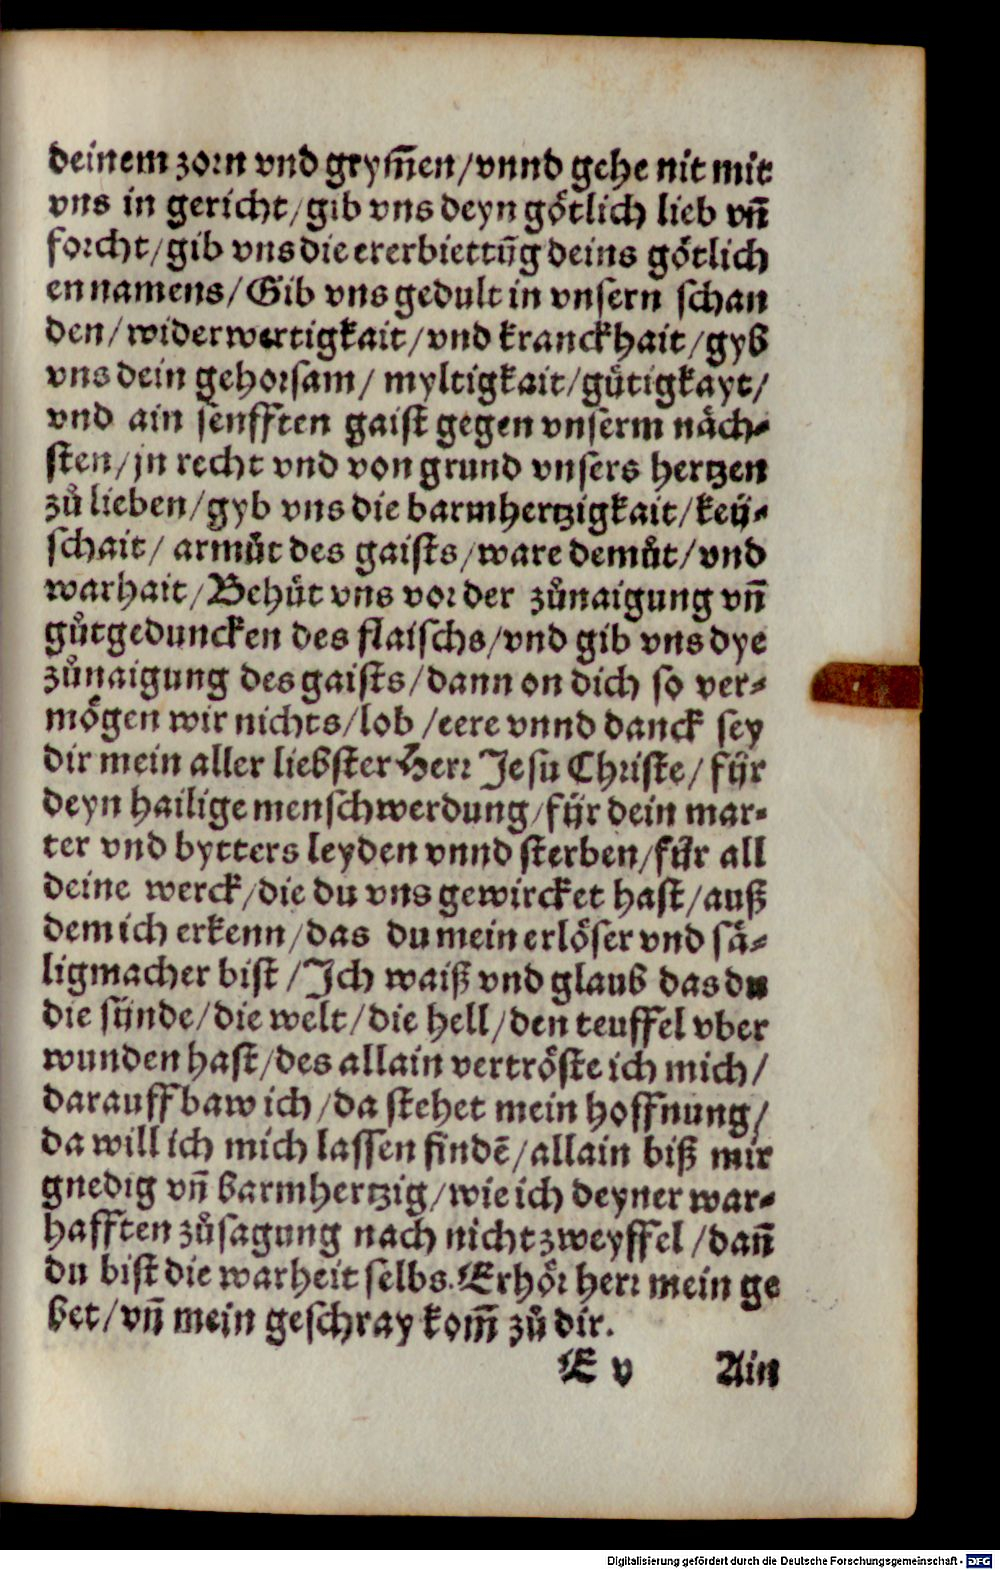 deinem zorn vnd grym̄en/vnnd gehe nit mit
vns in gericht/gib vns deyn götlich lieb vn̄
forcht/gib vns die ererbiettūg deins götlich
en namens/Gib vns gedult in vnsern schan
den/widerwertigkait/vnd kranckhait/gyb
vns dein gehorsam/ myltigkait/gütigkayt/
vnd ain senfften gaist gegen vnserm näch⸗
sten/jn recht vnd von grund vnsers hertzen
zů lieben/gyb vns die barmhertzigkait/keü⸗
schait/ armůt des gaists/ware demůt/vnd
warhait/Behüt vns vor der zůnaigung vn̄
gůtgeduncken des flaischs/vnd gib vns dye
zůnaigung des gaists/dann on dich so ver⸗
mögen wir nichts/lob /eere vnnd danck sey
dir mein aller liebster Herr Jesu Christe/ für
deyn hailige menschwerdung/für dein mar⸗
ter vnd bytters leyden vnnd sterben/für all
deine werck/die du vns gewircket hast/auß
dem ich erkenn/das du mein erlöser vnd sä⸗
ligmacher bist /Ich waiß vnd glaub das du
die sünde/die welt/die hell/den teuffel vber
wunden hast/des allain vertröste ich mich/
darauff baw ich /da stehet mein hoffnung/
da will ich mich lassen findē/allain biß mir
gnedig vn̄ barmhertzig/wie ich deyner war⸗
hafften zůsagung nach nicht zweyffel /dan̄
du bist die warheit selbs. Erhör herr mein ge
bet/vn̄ mein geschray kom̄ zů dir.
E v Ain
Digitalisierung gefördert durch die Deutsche Forschungsgemeinschaft - DFG